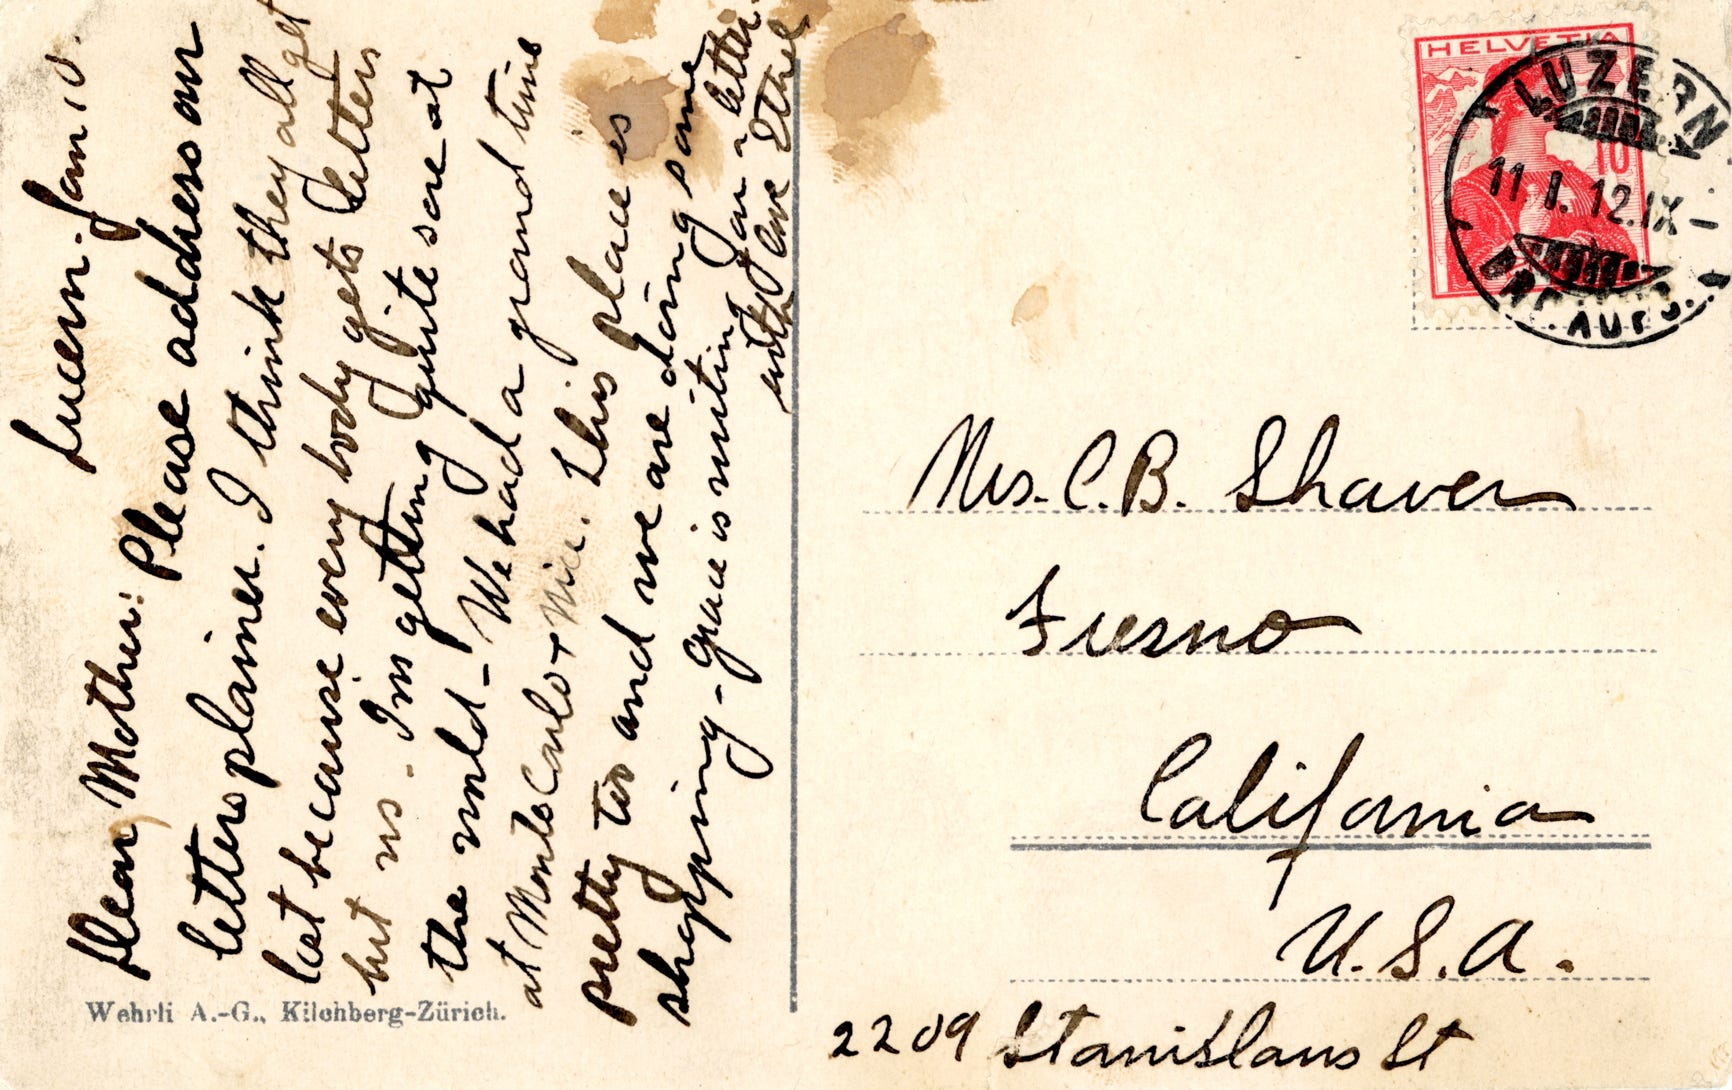 Lucern. Jan 10.
Dear Mother: Please address our
letters plainer. I think they all get
lost because every body gets letters
but us - I'm getting quite sore at
the world - We had a grand time
at Monte Carlo + Nice. This place is
pretty too and we are doing some
shopping - Grace is writing you a letter.
with love Ethel
Wehrli A.-G., Kilchberg-Zürich.
HELVETIA
10
LUZERN
11.I.12.IX-
BRF. AUFG.
Mrs. C. B. Shaver
Fresno
California
U.S.A.
2209 Stanislaus St